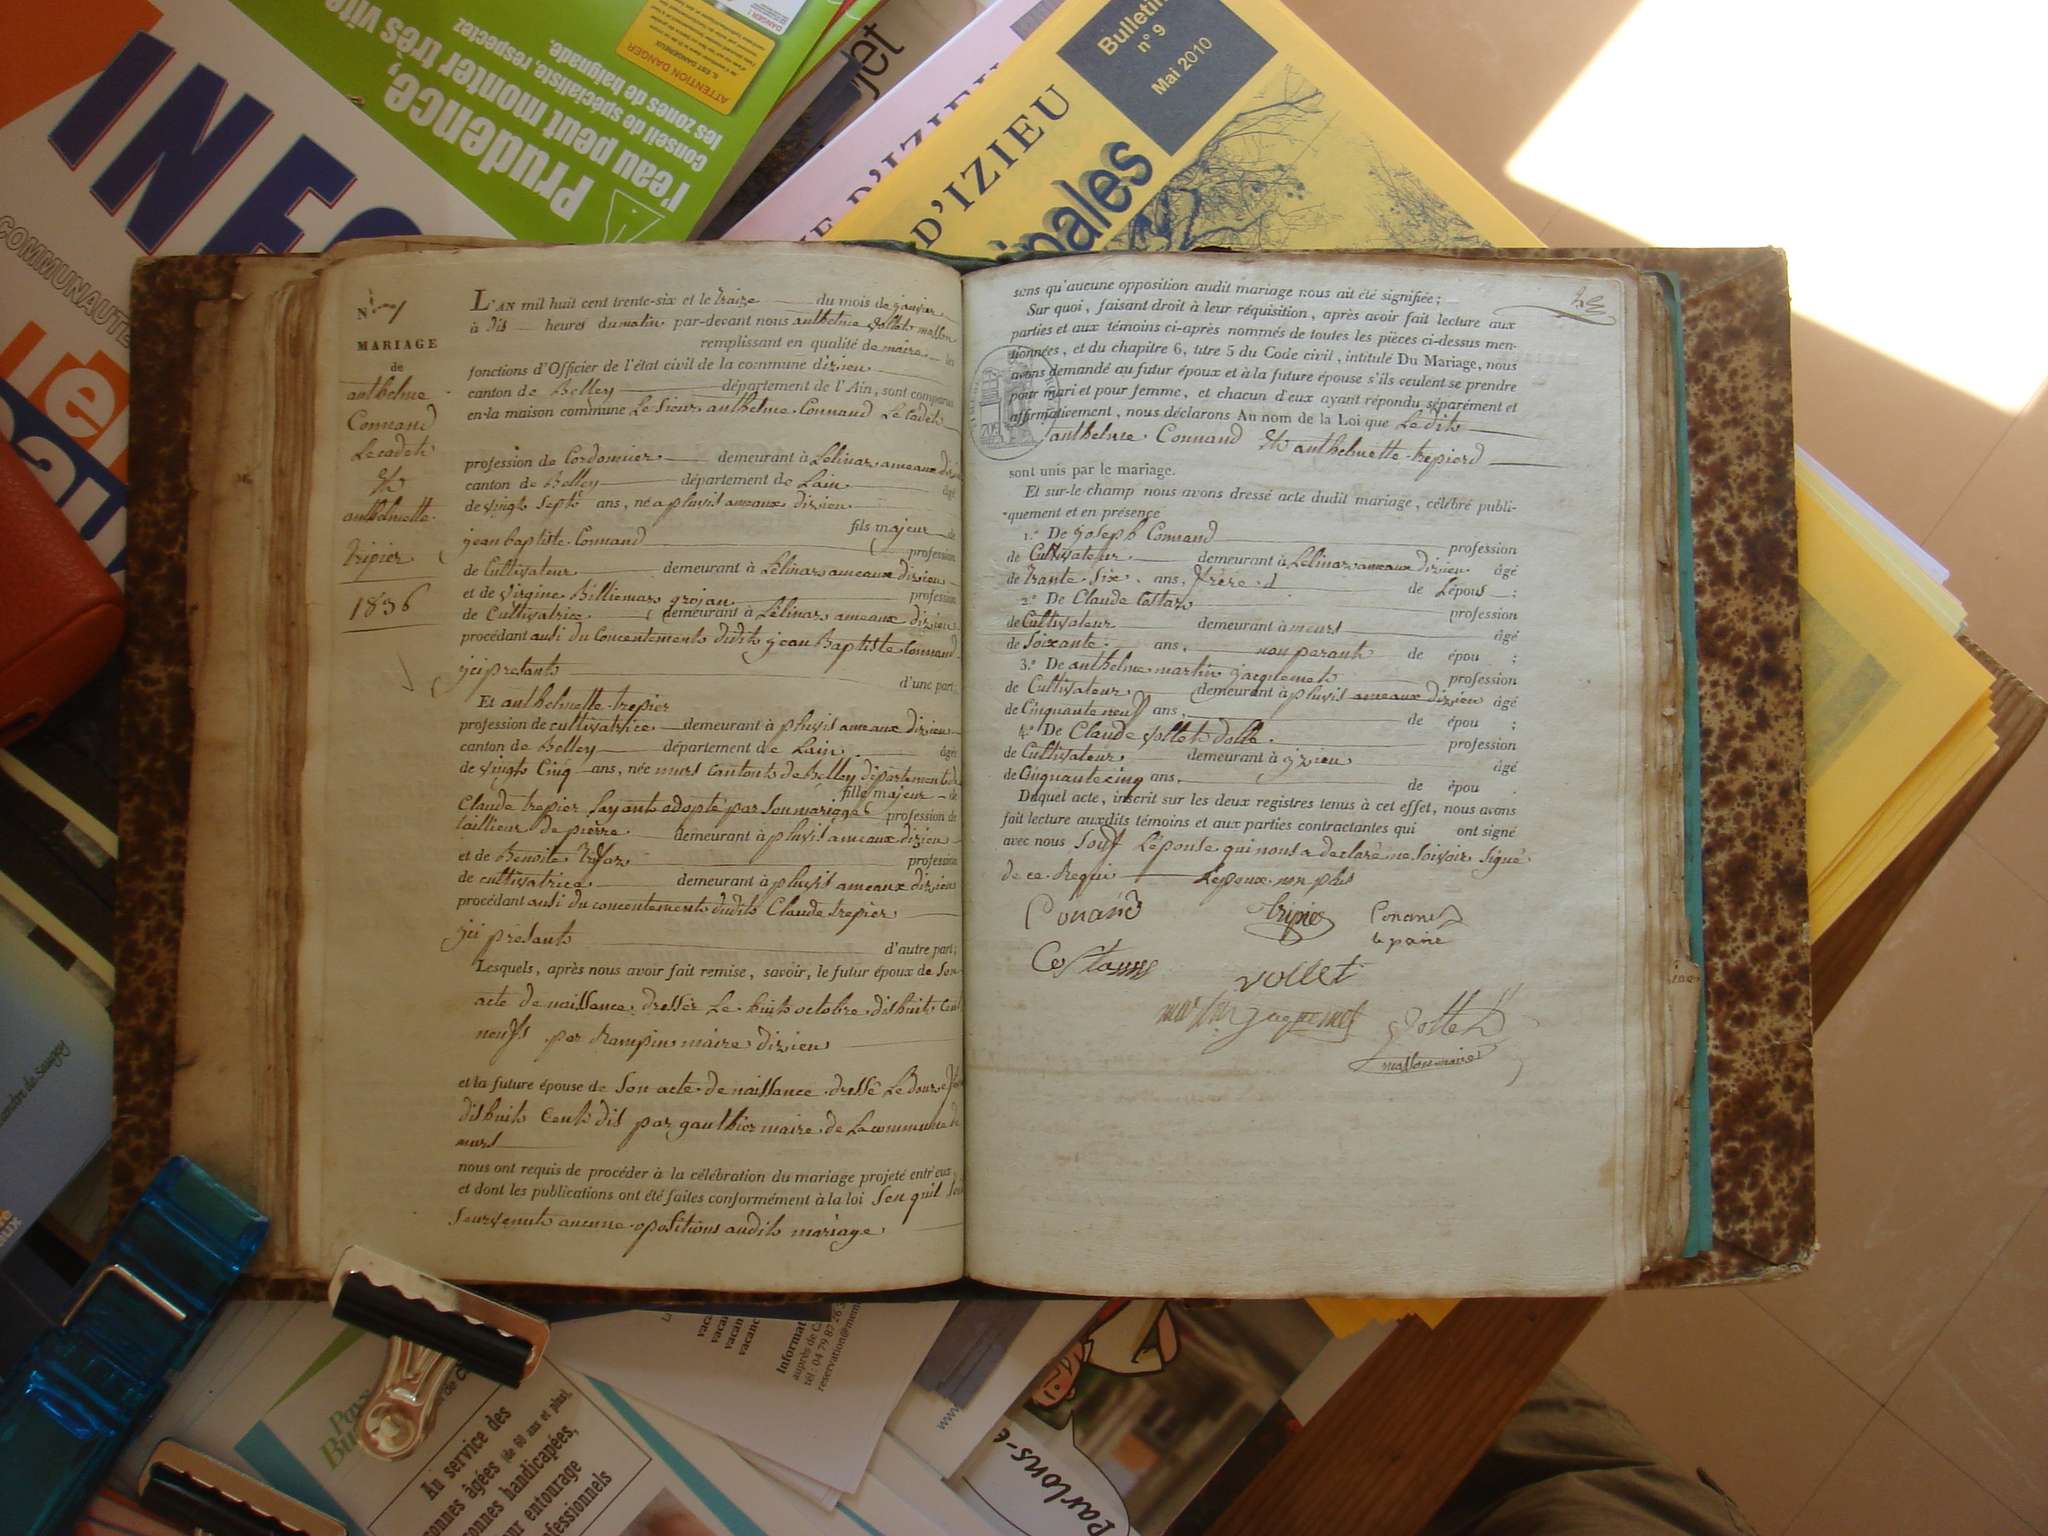 INFO
COMMUNAUTE
Prudence,
l'eau peut monter très vite
conseil de spécialiste, respectez
les zones de baignade.
ATTENTION DANGER
DANGER !
D'IZIEU
D'IZIEU
Bulletin
n° 9
Mai 2010
ipales
N° 1
MARIAGE
de
anthelme
Connand
Lecadets
Et
anthelmette
tripier
1836
L'AN mil huit cent trente-six et le traize du mois de janvier
à dis heures du matin par-devant nous anthelme vollets masson
remplissant en qualité de maire les
fonctions d'Officier de l'état civil de la commune dizieu
canton de Belley département de l'Ain, sont comparus
en la maison commune Le Sieur anthelme Connand Le Cadets
profession de Cordonnier demeurant à Lélinas ameaux dizieu
canton de Belley département de Lain âgé
de vingts septs ans, né a pluvis ameaux dizieu
fils majeur de
jean baptiste Connand profession
de Cultivateur demeurant à Lélinas ameaux dizieu
et de virgine Billiemas grojan profession
de Cultivatrice demeurant à Lélinas ameaux dizieu
procédant ausi du Concentements dudits jean Baptiste Connand
jci presants d'une part;
Et anthelmette trepier
profession de cultivatrice demeurant à pluvis ameaux dizieu
canton de Belley département de Lain âgée
de vingts Cinq ans, née murs cantonts de Belley département de
fille majeur de
Claude trepier Layants adopté par Son mariage profession de
taillieur de pierre demeurant à pluvis ameaux dizieu
et de Benoite profession
de cultivatrice demeurant à pluvis ameaux dizieu
procédant ausi du concentements dudits Claude trepier
jci présants d'autre part;
Lesquels, après nous avoir fait remise, savoir, le futur époux de Son
acte de naissance dressér Le huits octobre dishuits Cent
neufs par Rampin maire dizieu
et la future épouse de Son acte de naissance dressé Le Douze
dishuits Cents dis par gaulthier maire de La commune de
murs
nous ont requis de procéder à la célébration du mariage projeté entr'eux
et dont les publications ont été faites conformément à la loi Sen quil
Sourvenuts aucune opositions audits mariage
sens qu'aucune opposition audit mariage nous ait été signifiée;
Sur quoi, faisant droit à leur réquisition, après avoir fait lecture aux
parties et aux témoins ci-après nommés de toutes les pièces ci-dessus men-
tionnées, et du chapitre 6, titre 5 du Code civil, intitulé Du Mariage, nous
avons demandé au futur époux et à la future épouse s'ils veulent se prendre
pour mari et pour femme, et chacun d'eux ayant répondu séparément et
affirmativement, nous déclarons Au nom de la Loi que Ledits
anthelme Connand Et anthelmette trepierd
sont unis par le mariage.
Et sur-le-champ nous avons dressé acte dudit mariage, célébré publi-
quement et en présence
1.° De joseph Connand profession
de Cultivateur demeurant à Lélinas ameaux dizieu âgé
de trante Six ans, frère d de Lépous ;
2.° De Claude Costaz profession
de Cultivateur demeurant à meurs âgé
de Soixante ans, non parants de épou ;
3.° De anthelme martin jacquemets profession
de Cultivateur demeurant à pluvis ameaux dizieu âgé
de Cinquante neuf ans, de épou ;
4.° De Claude vollets dolle profession
de Cultivateur demeurant à jzieu âgé
de Cinquante cinq ans, de épou .
Duquel acte, inscrit sur les deux registres tenus à cet effet, nous avons
fait lecture auxdits témoins et aux parties contractantes qui ont signé
avec nous Souf Lépouse qui nous a declarê ne Savoir Signé
de ce Requi Lepoux non plus
Conand tripier Conand
le paire
Costaz
vollet
martin jaquemet vollet
masson maire
Informat
auprès de
Au service des
onnes âgées (de 60 ans et plus),
onnes handicapées,
ur entourage
ofessionnels
Parlons-e